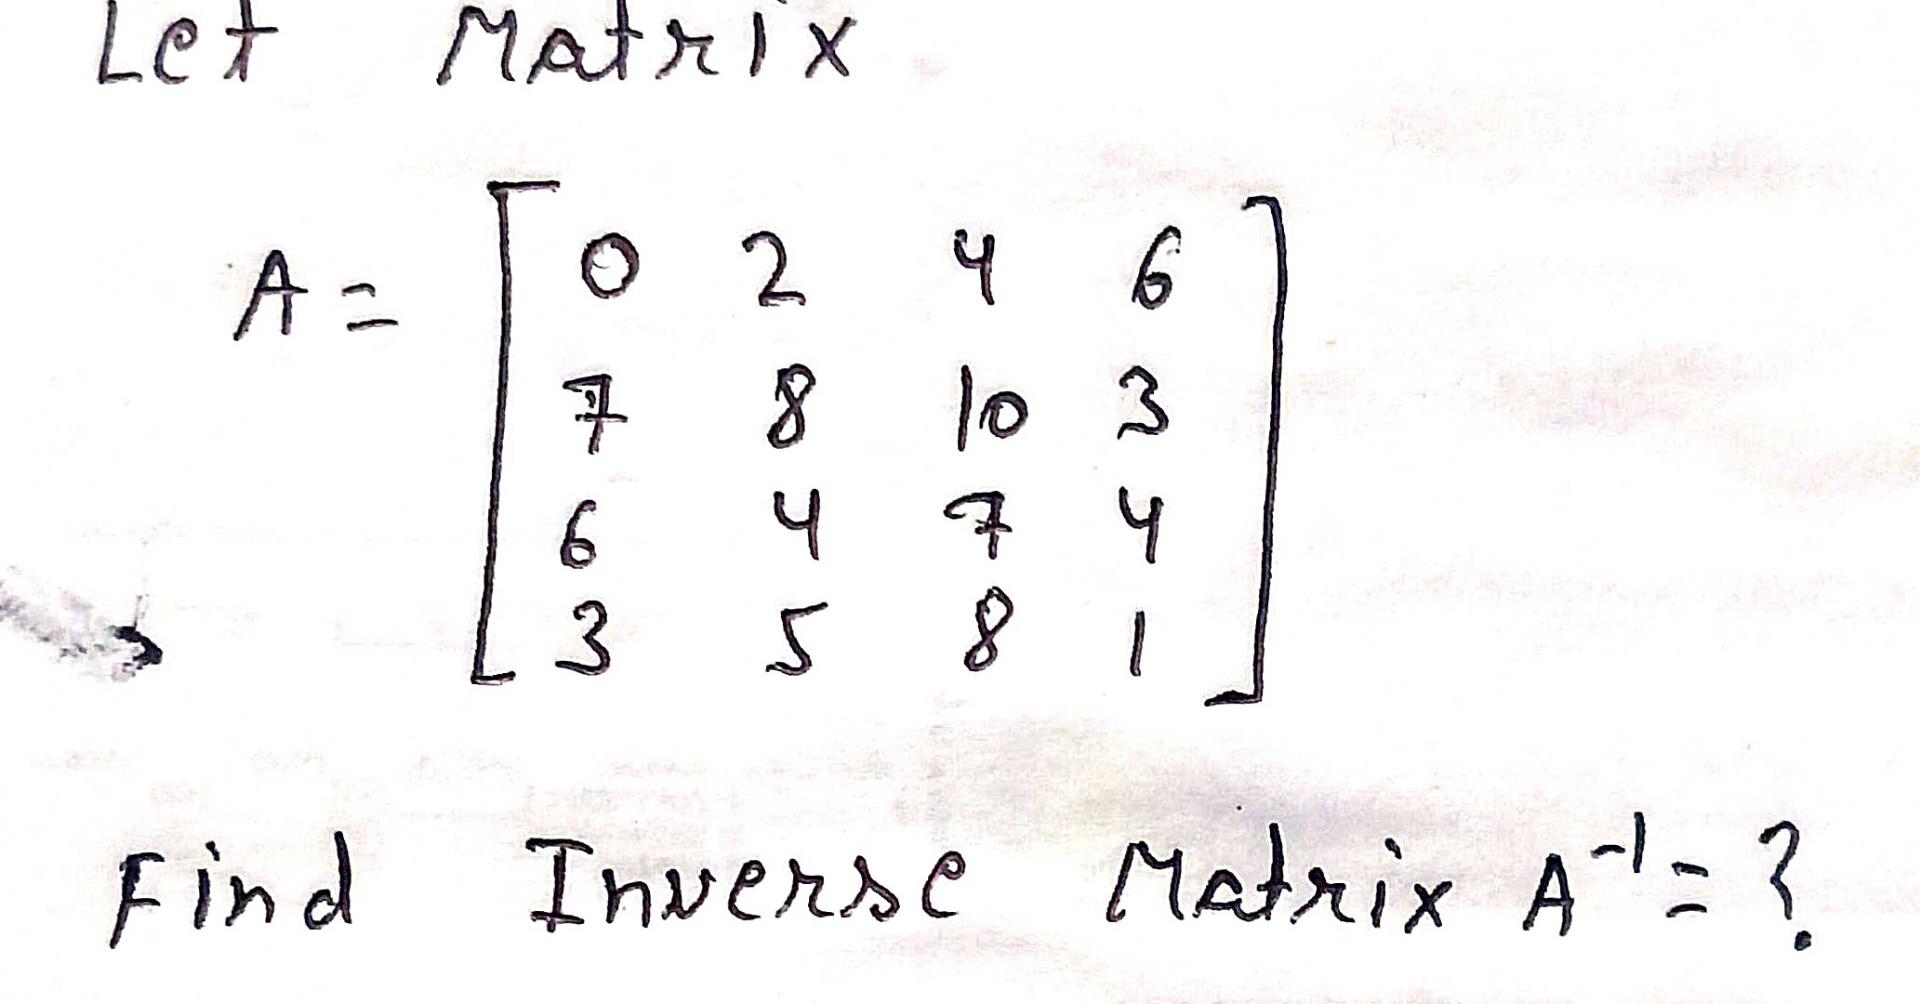 Let Matrix
A = [ 0 2 4 6
7 8 10 3
6 4 7 4
3 5 8 1 ]
Find Inverse Matrix A⁻¹ = ?